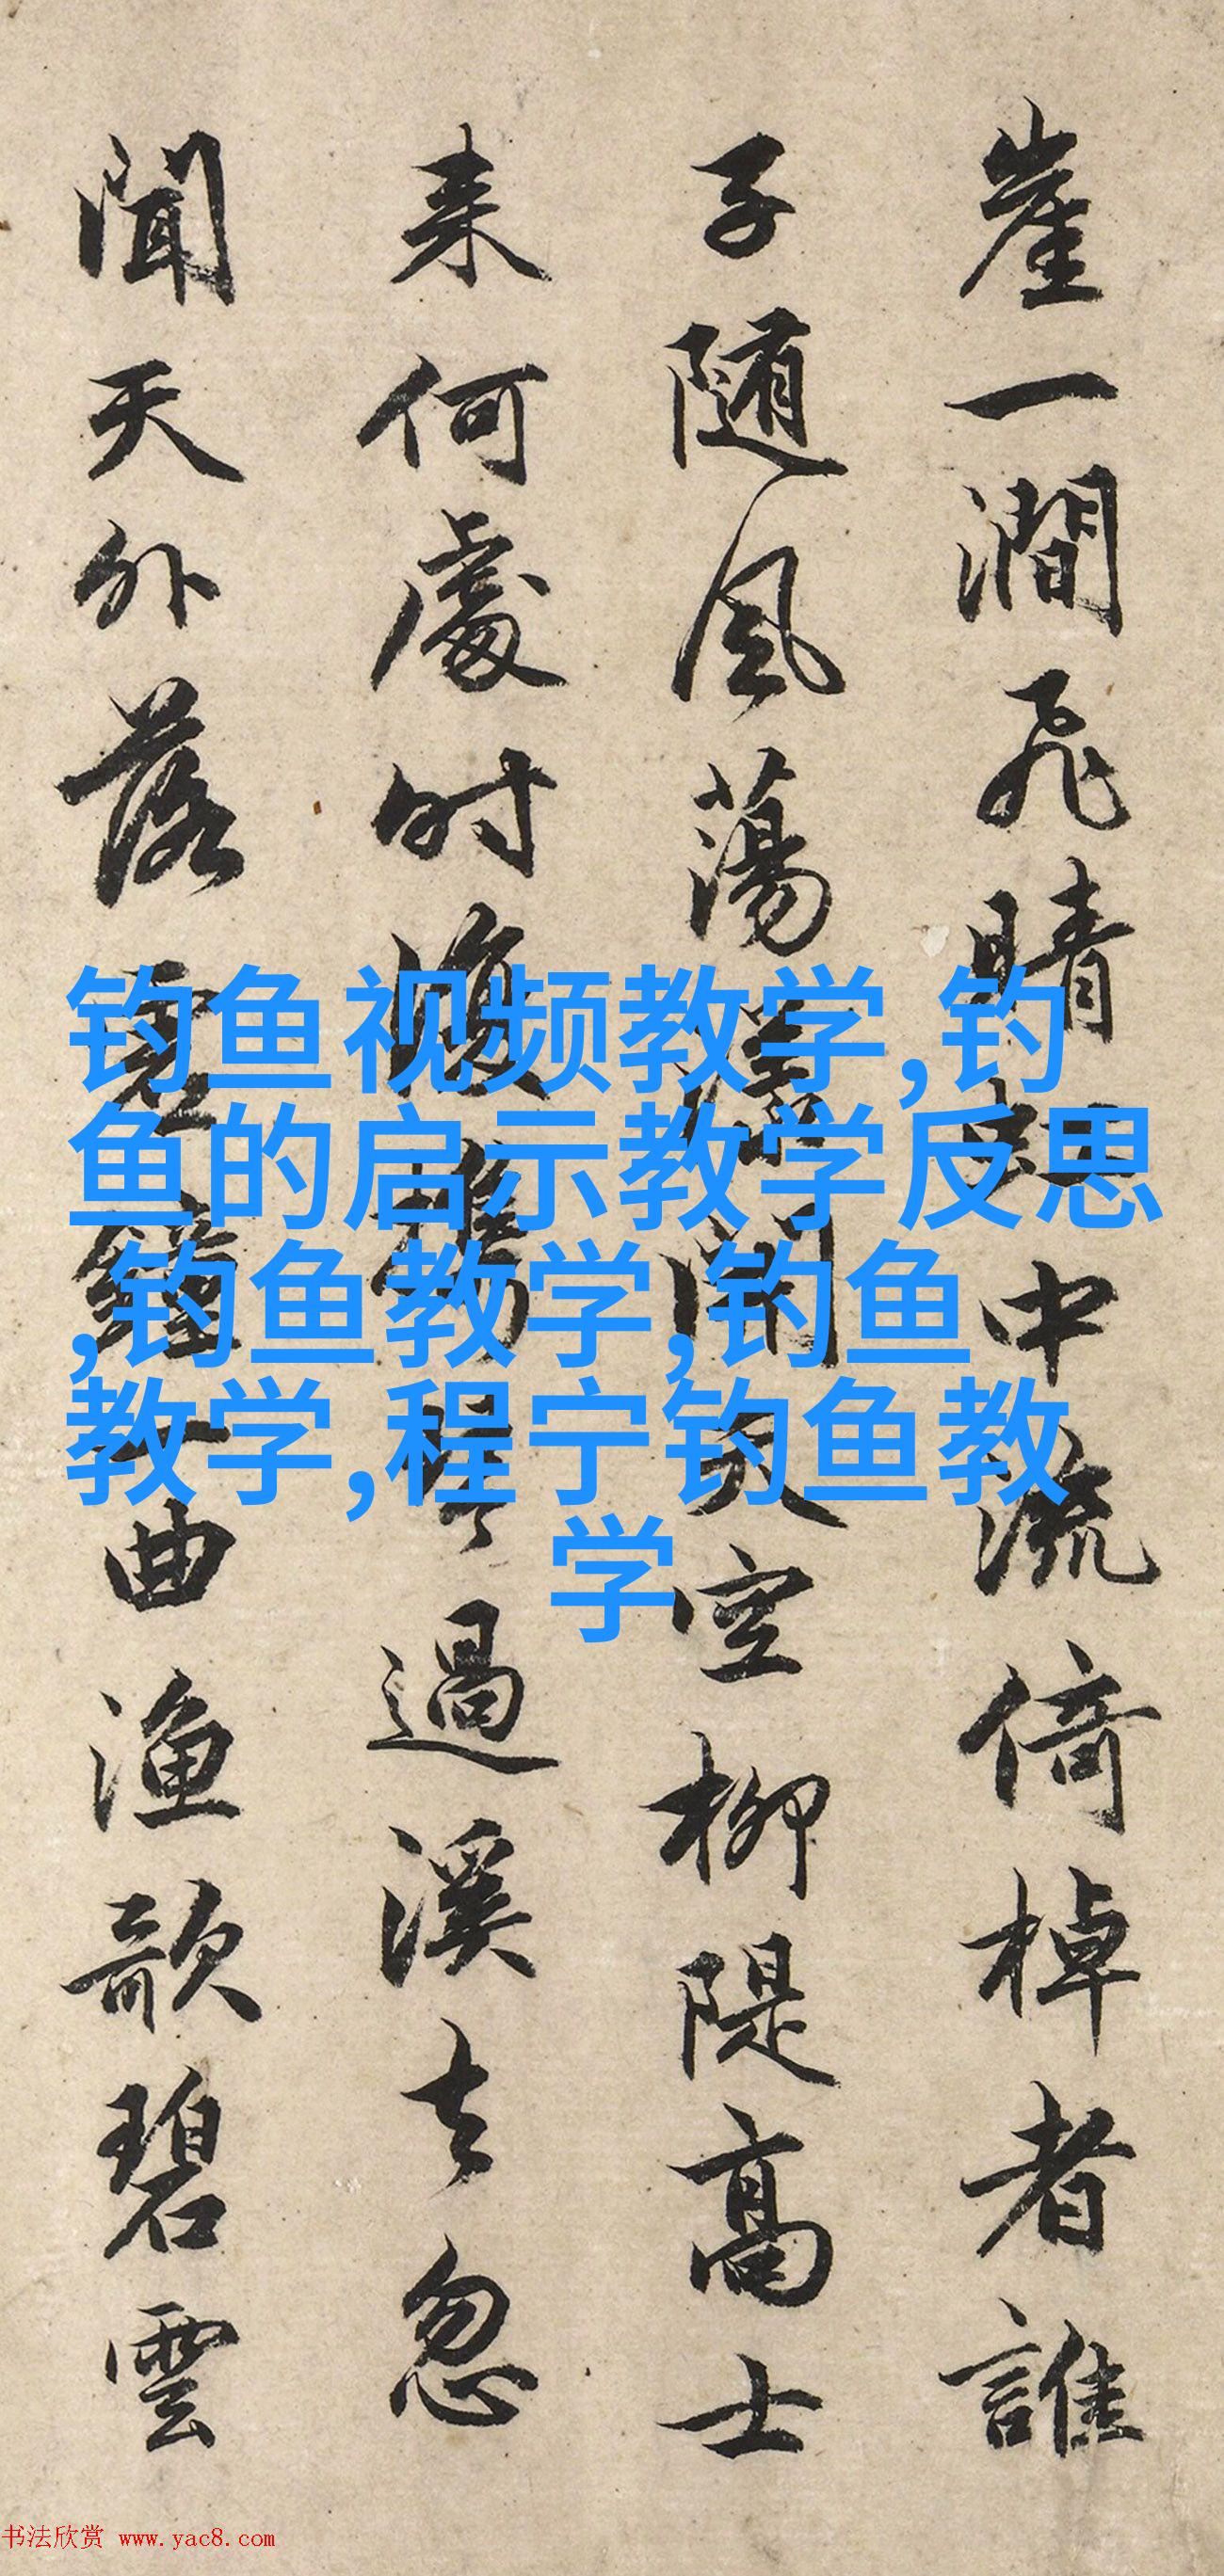 崖一澗飛晴中流倚棹者誰
子随風蕩開空柳隄高士
来何處时復攜琴過溪去忽
聞天外落一曲漁歌碧雲
钓鱼视频教学,钓
鱼的启示教学反思
,钓鱼教学,钓鱼
教学,程宁钓鱼教
学
书法欣赏 www.yac8.com